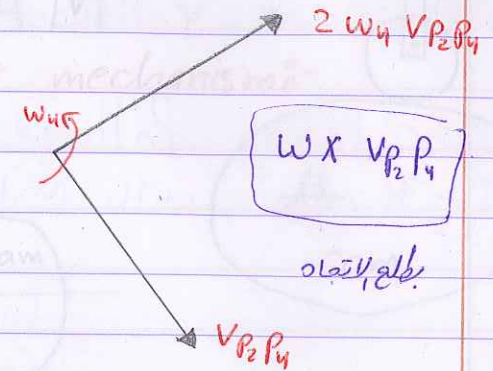 2 ω₄ V P₂ P₄
ω₄
ω X V P₂ P₄
بطلع الاتجاه
V P₂ P₄